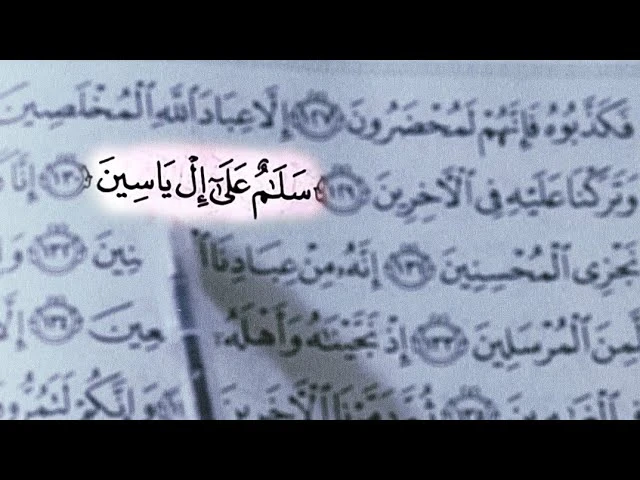 فَكَذَّبُوهُ فَإِنَّهُمْ لَمُحْضَرُونَ ﴿١٢٧﴾ إِلَّا عِبَادَ اللَّهِ الْمُخْلَصِينَ
وَتَرَكْنَا عَلَيْهِ فِي الْآخِرِينَ ﴿١٢٩﴾ سَلَامٌ عَلَىٰ إِلْ يَاسِينَ ﴿١٣٠﴾ إِنَّا
نَجْزِي الْمُحْسِنِينَ ﴿١٣١﴾ إِنَّهُ مِنْ عِبَادِنَا ﴿١٣٢﴾
لَّمِنَ الْمُرْسَلِينَ ﴿١٣٣﴾ إِذْ نَجَّيْنَاهُ وَأَهْلَهُ ﴿١٣٤﴾
دَمَّرْنَا الْآخَرِينَ وَإِنَّكُمْ لَتَمُرُّونَ